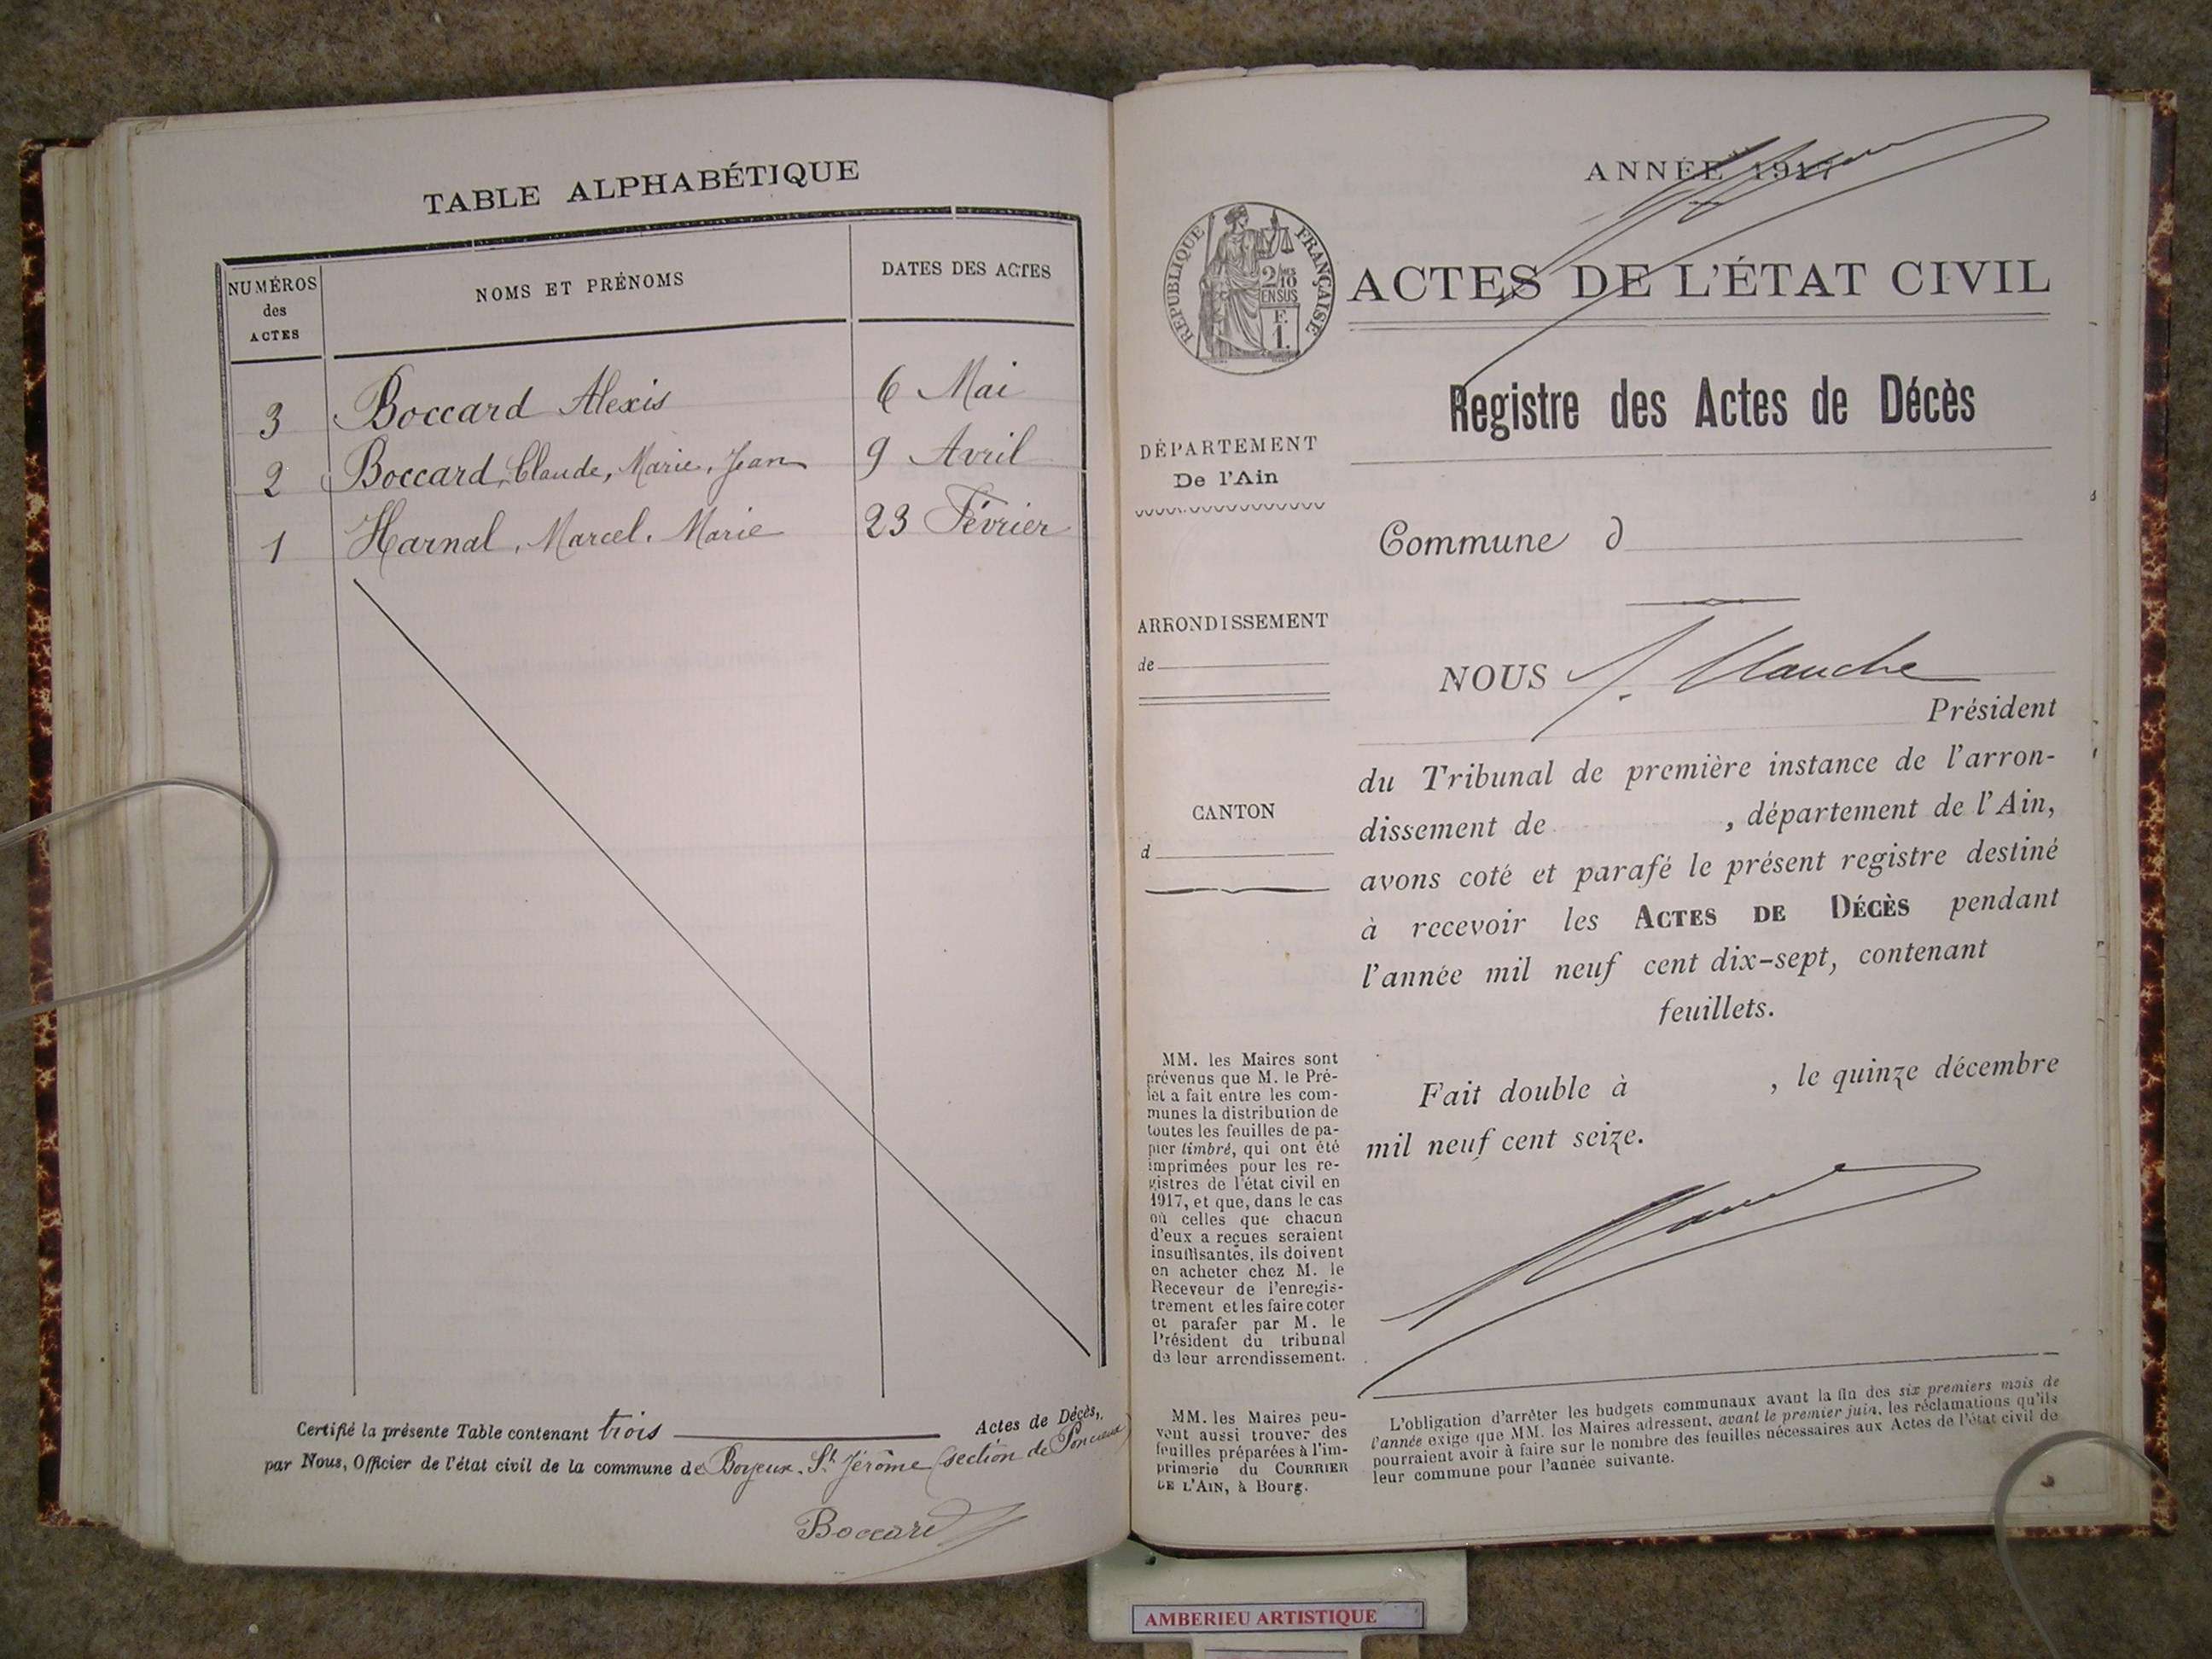 TABLE ALPHABÉTIQUE
NUMÉROS des ACTES
NOMS ET PRÉNOMS
DATES DES ACTES
3 Boccard Alexis 6 Mai
2 Boccard, Claude, Marie, Jean 9 Avril
1 Harnal, Marcel, Marie 23 Février
Certifié la présente Table contenant trois Actes de Décès,
par Nous, Officier de l'état civil de la commune de Boyeux-St Jérôme (section de Poncieux)
Boccard
ANNÉE 1917
RÉPUBLIQUE FRANÇAISE
2/10 EN SUS
F. 1.
ACTES DE L'ÉTAT CIVIL
Registre des Actes de Décès
DÉPARTEMENT
De l'Ain
Commune d
ARRONDISSEMENT
de
NOUS
Président
du Tribunal de première instance de l'arron-
dissement de , département de l'Ain,
avons coté et parafé le présent registre destiné
à recevoir les ACTES DE DÉCÈS pendant
l'année mil neuf cent dix-sept, contenant
feuillets.
CANTON
d
Fait double à , le quinze décembre
mil neuf cent seize.
MM. les Maires sont
prévenus que M. le Pré-
fet a fait entre les com-
munes la distribution de
toutes les feuilles de pa-
pier timbré, qui ont été
imprimées pour les re-
gistres de l'état civil en
1917, et que, dans le cas
où celles que chacun
d'eux a reçues seraient
insuffisantes, ils doivent
en acheter chez M. le
Receveur de l'enregis-
trement et les faire coter
et parafer par M. le
Président du tribunal
de leur arrondissement.
MM. les Maires peu-
vent aussi trouver des
feuilles préparées à l'im-
primerie du COURRIER
DE L'AIN, à Bourg.
L'obligation d'arrêter les budgets communaux avant la fin des six premiers mois de
l'année exige que MM. les Maires adressent, avant le premier juin, les réclamations qu'ils
pourraient avoir à faire sur le nombre des feuilles nécessaires aux Actes de l'état civil de
leur commune pour l'année suivante.
AMBERIEU ARTISTIQUE